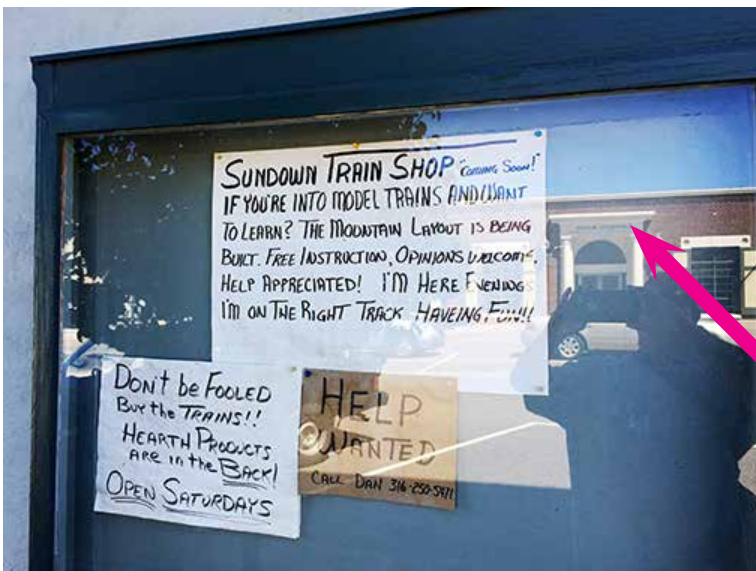 SUNDOWN TRAIN SHOP "COMING SOON!"
IF YOU'RE INTO MODEL TRAINS AND WANT
TO LEARN? THE MOUNTAIN LAYOUT IS BEING
BUILT. FREE INSTRUCTION, OPINIONS WELCOME,
HELP APPRECIATED! I'M HERE EVENINGS
I'M ON THE RIGHT TRACK HAVEING FUN!!
DON'T be FOOLED
BUY the TRAINS!!
HEARTH PRODUCTS
ARE in the BACK!
OPEN SATURDAYS
HELP
WANTED
CALL DAN 316-250-5971